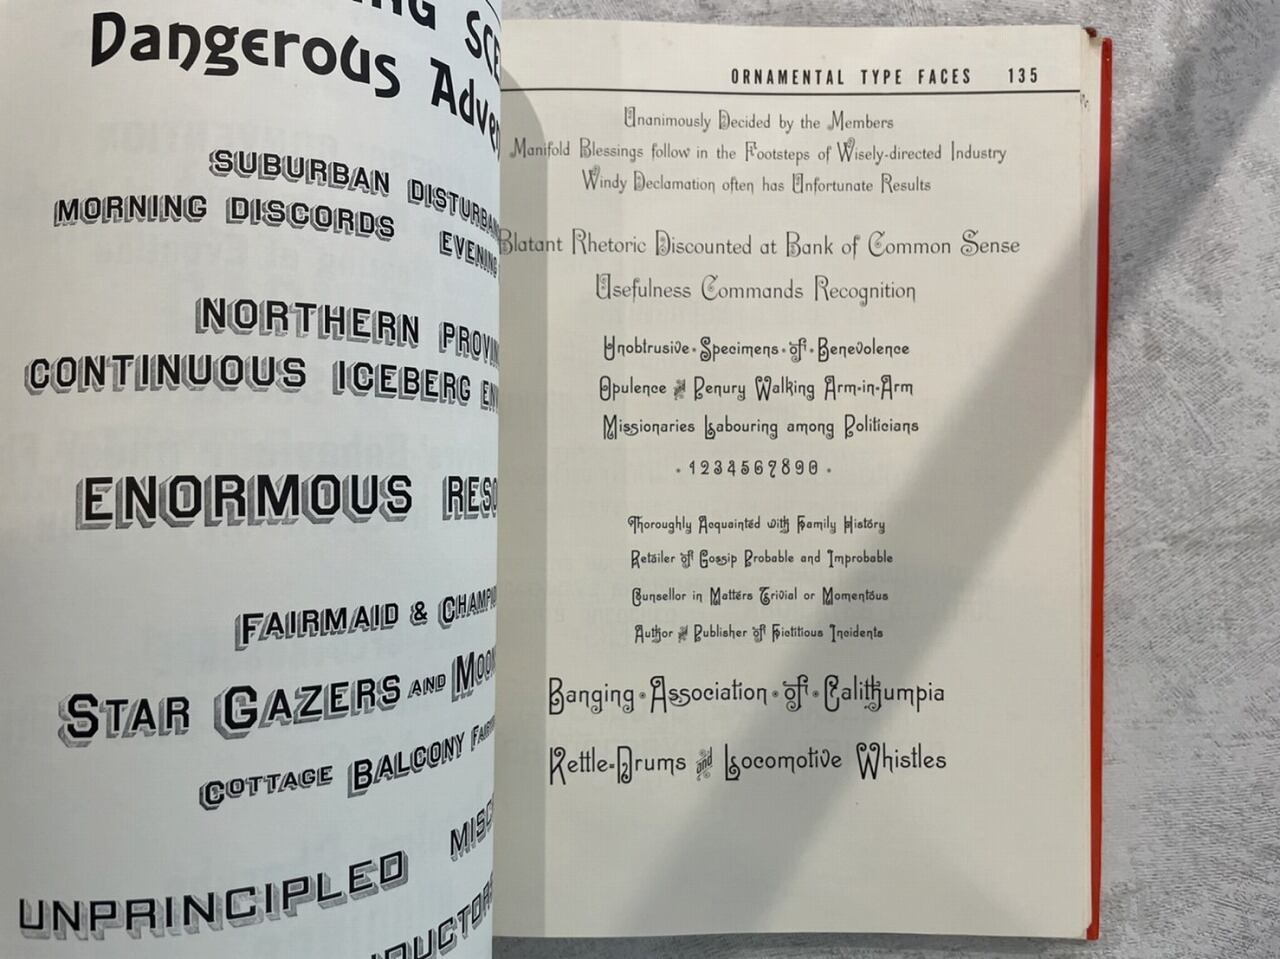 Dangerous
SUBURBAN
MORNING DISCORDS EVENING
NORTHERN
CONTINUOUS ICEBERG
ENORMOUS
FAIRMAID &
STAR GAZERS AND
COTTAGE BALCONY
UNPRINCIPLED
ORNAMENTAL TYPE FACES 135
Unanimously Decided by the Members
Manifold Blessings follow in the Footsteps of Wisely-directed Industry
Windy Declamation often has Unfortunate Results
Blatant Rhetoric Discounted at Bank of Common Sense
Usefulness Commands Recognition
Unobtrusive · Specimens · of · Benevolence
Opulence and Penury Walking Arm-in-Arm
Missionaries Labouring among Politicians
· 1234567890 ·
Thoroughly Acquainted with Family History
Retailer of Gossip Probable and Improbable
Counsellor in Matters Trivial or Momentous
Author and Publisher of Fictitious Incidents
Banging · Association · of · Calithumpia
Kettle-Drums and Locomotive Whistles